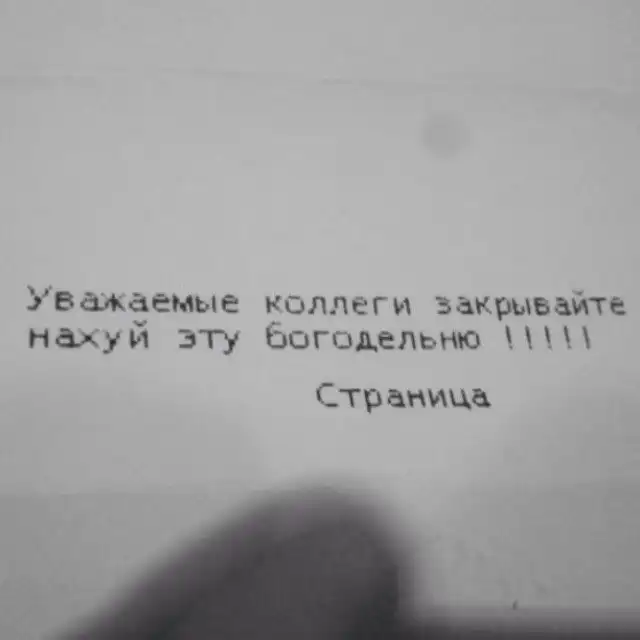 Уважаемые коллеги закрывайте
нахуй эту богодельню !!!!!
Страница